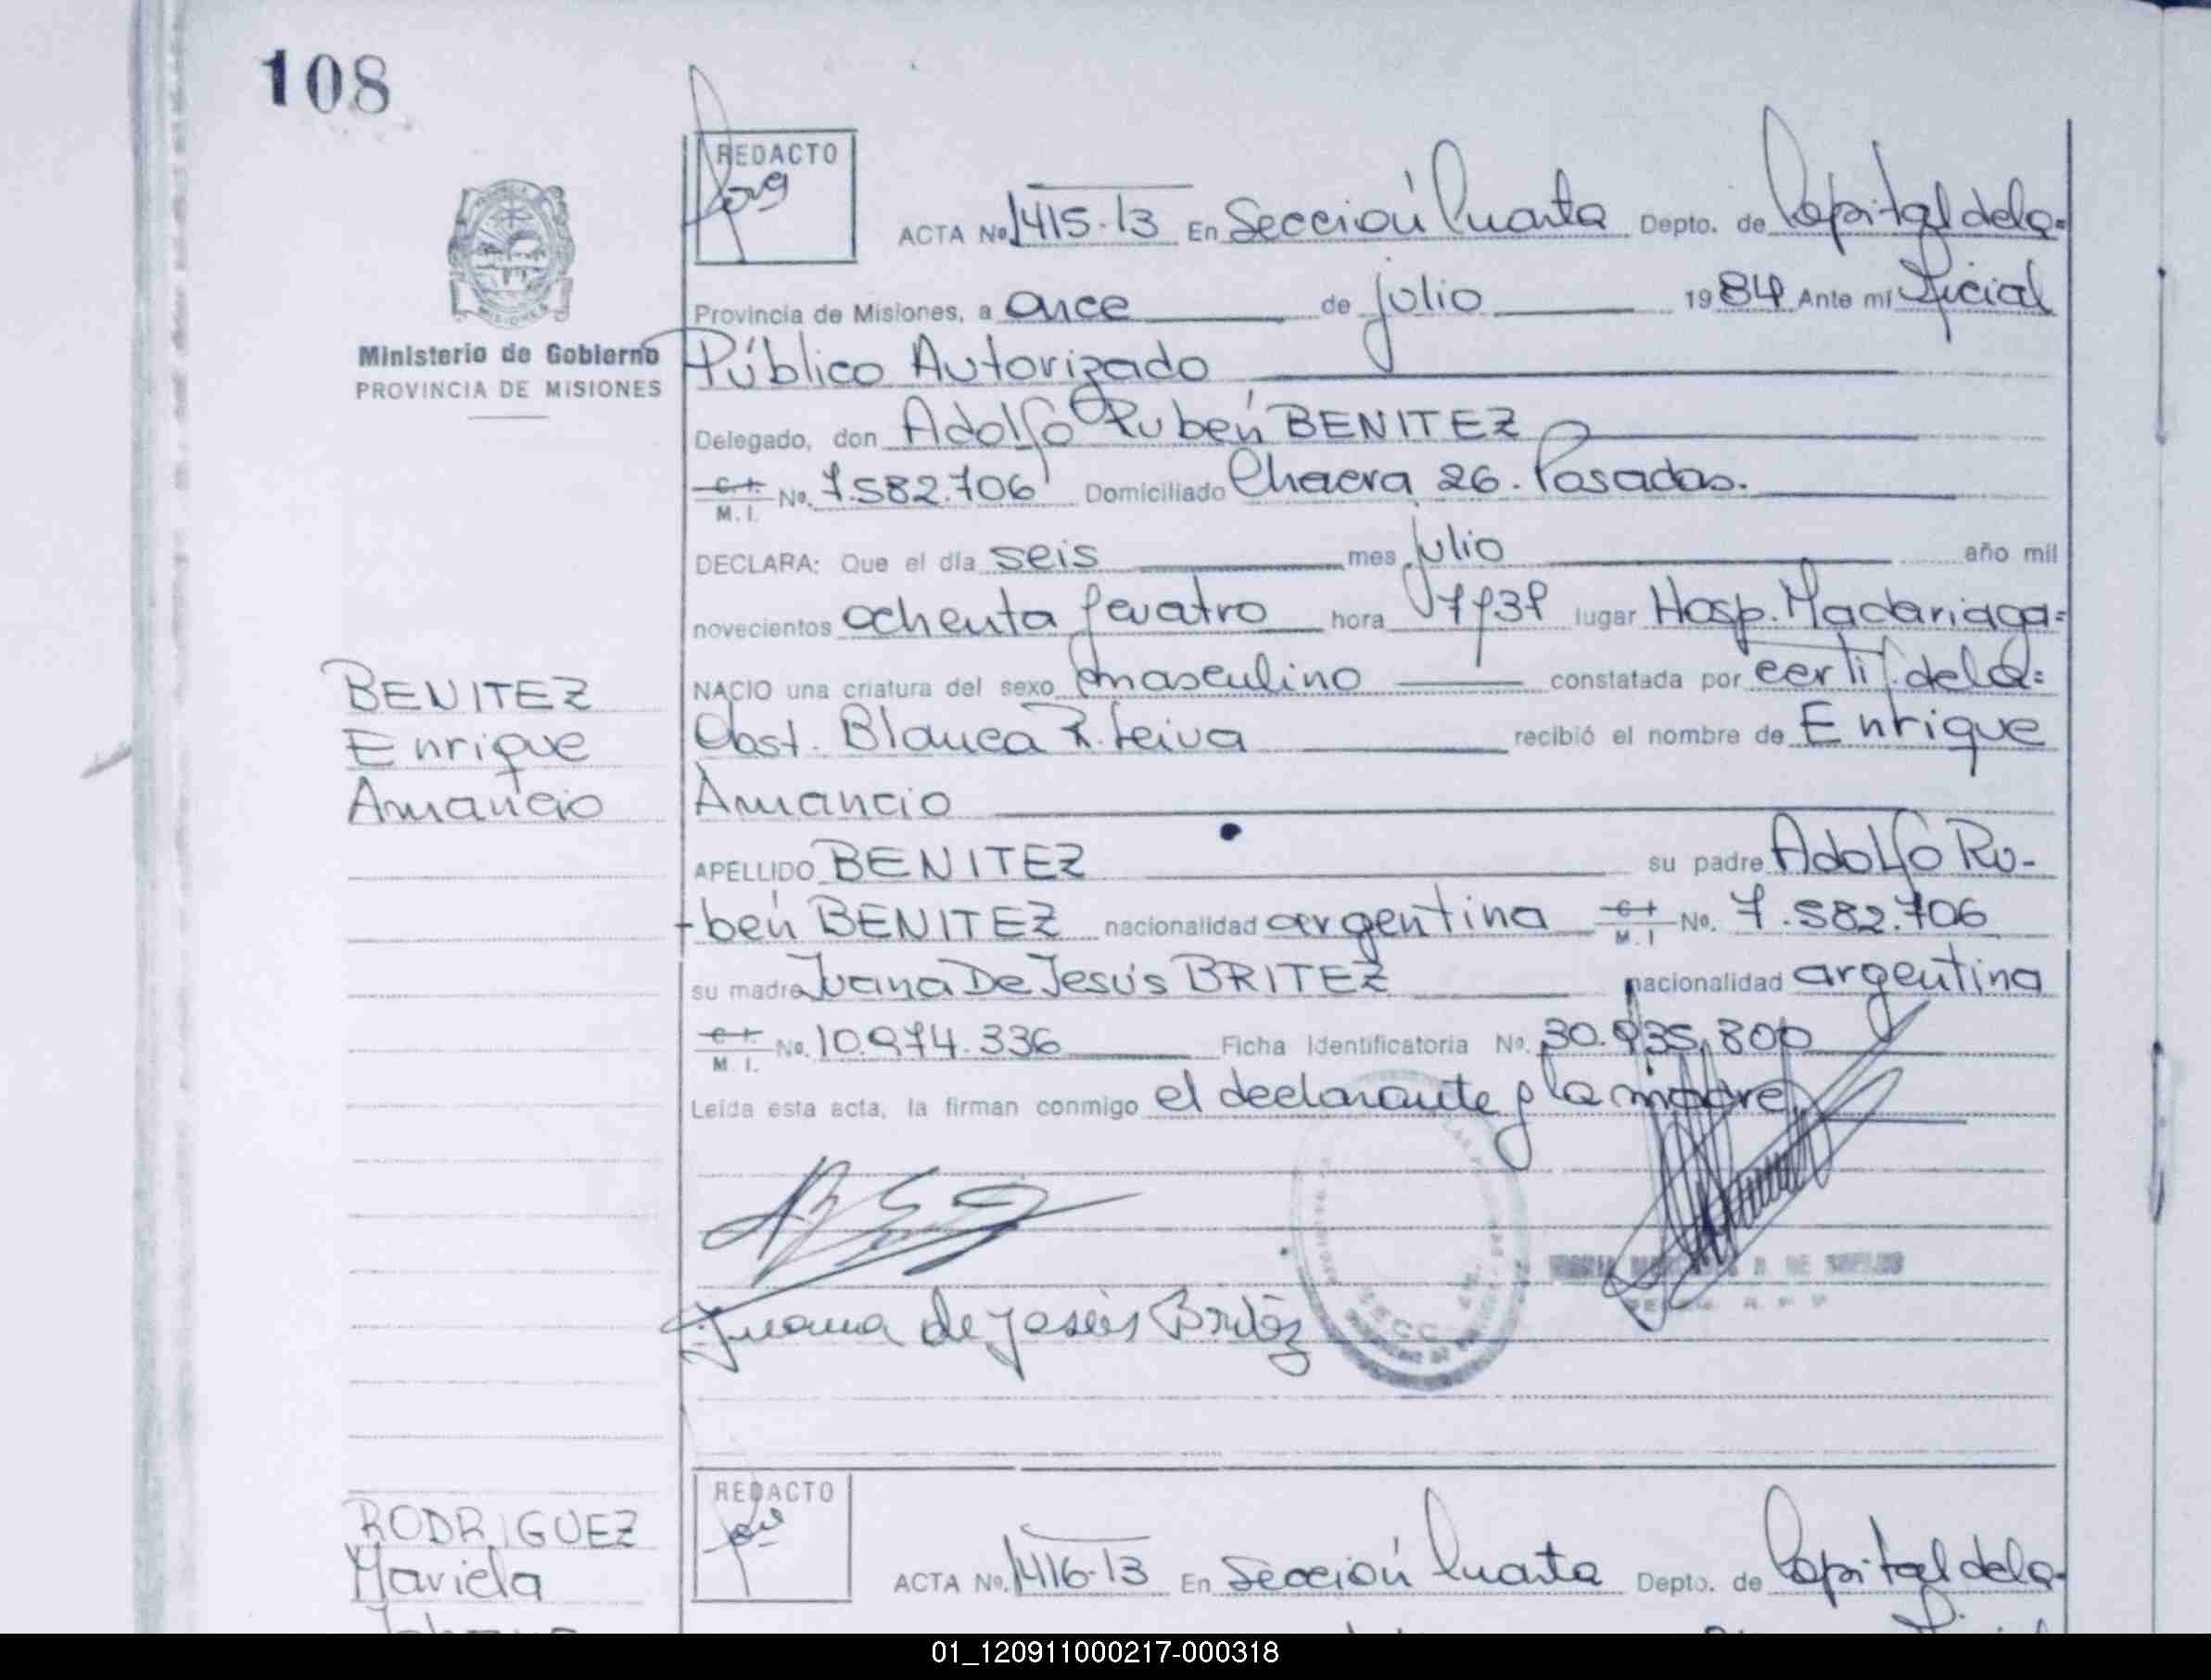 108
REDACTO
ACTA No. 1415-13 En Sección Cuarta Depto. de Capital de la=
Provincia de Misiones, a once de julio 1984 Ante mí Oficial
Ministerio de Gobierno
PROVINCIA DE MISIONES
Público Autorizado
Delegado, don Adolfo Rubén BENITEZ
C. I. M. I. No. 7.582.706 Domiciliado Chacra 26. Posadas.
DECLARA: Que el día seis mes julio año mil
novecientos ochenta y cuatro hora lugar Hosp. Madariaga=
NACIO una criatura del sexo masculino constatada por certif. de la=
Obst. Blanca R. Leiva recibió el nombre de Enrique
Amancio
BENITEZ
Enrique
Amancio
APELLIDO BENITEZ su padre Adolfo Ru-
-bén BENITEZ nacionalidad argentina C. I. M. I No. 7.582.706
su madre Juana De Jesús BRITEZ nacionalidad argentina
C. I. M. I. No. 10.974.336 Ficha Identificatoria No. 30.935.800
Leída esta acta, la firman conmigo el declarante y la madre
Juana de Jesús Britez
RODRIGUEZ
Mariela
REDACTO
ACTA No. 1416-13 En Sección Cuarta Depto. de Capital de la-
01_120911000217-000318